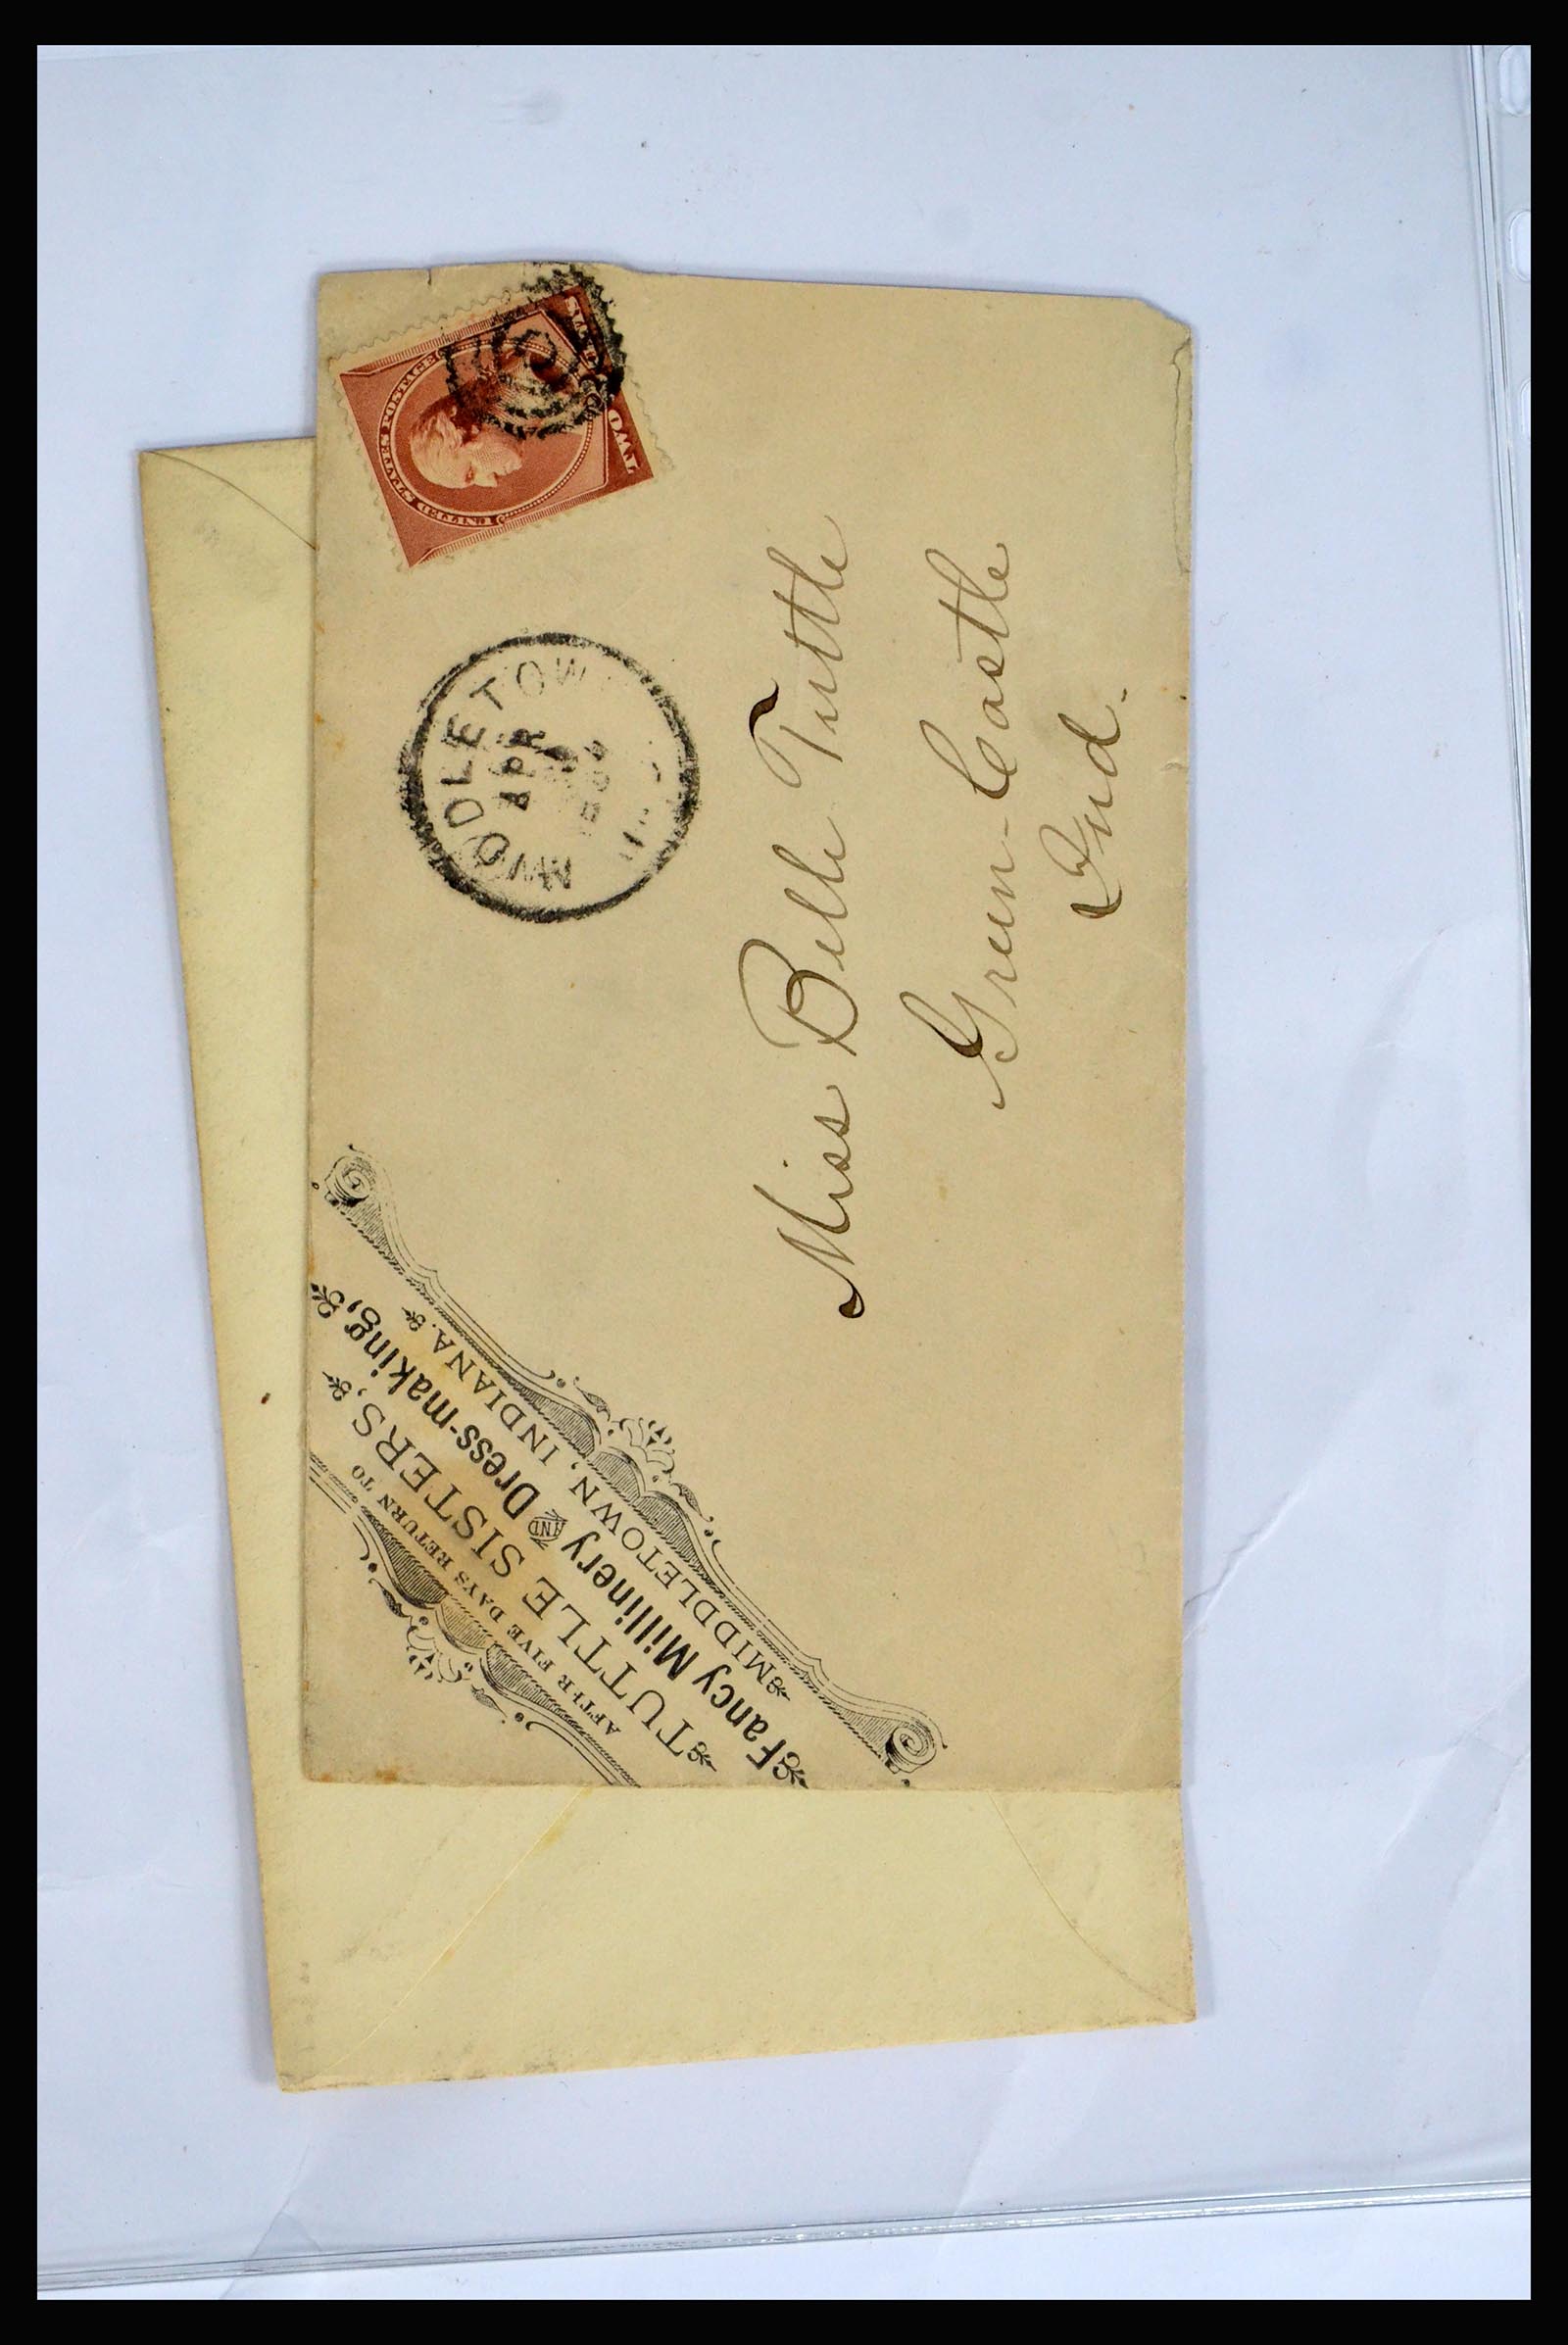 AFTER FIVE DAYS RETURN TO
TUTTLE SISTERS,
Fancy Millinery AND Dress-making,
MIDDLETOWN, INDIANA.
MIDDLETOWN
APR
UNITED STATES POSTAGE
TWO
Miss Belle Tuttle
Green-Castle
Ind.